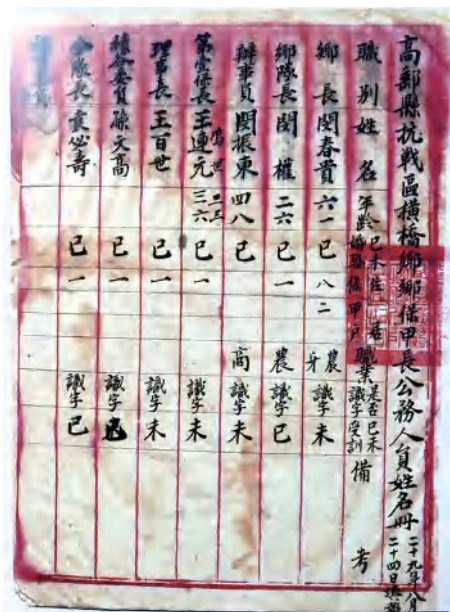 高郵縣抗戰區橫橋鄉鄉保甲長公務人員姓名冊 二十九年八月二十四日造報
職別 姓名 年齡 已未婚 住居 保甲戶 職業 是否識字 已未受訓 備考
鄉長 閔春貴 六一 已 八二 農 識字 未
鄉隊長 閔權 二六 已 一 農 識字 已
辦事員 閔振東 四八 已 一 商 識字 未
第壹保長 王連元 三六 已 一 識字 未
理事長 王百世 已 一 識字 未
孫文高 已 一 識字 已
隊長 袁必壽 已 一 識字 已